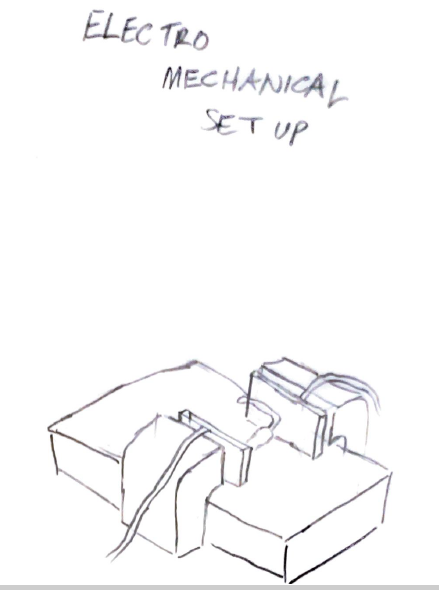 ELECTRO
MECHANICAL
SET UP